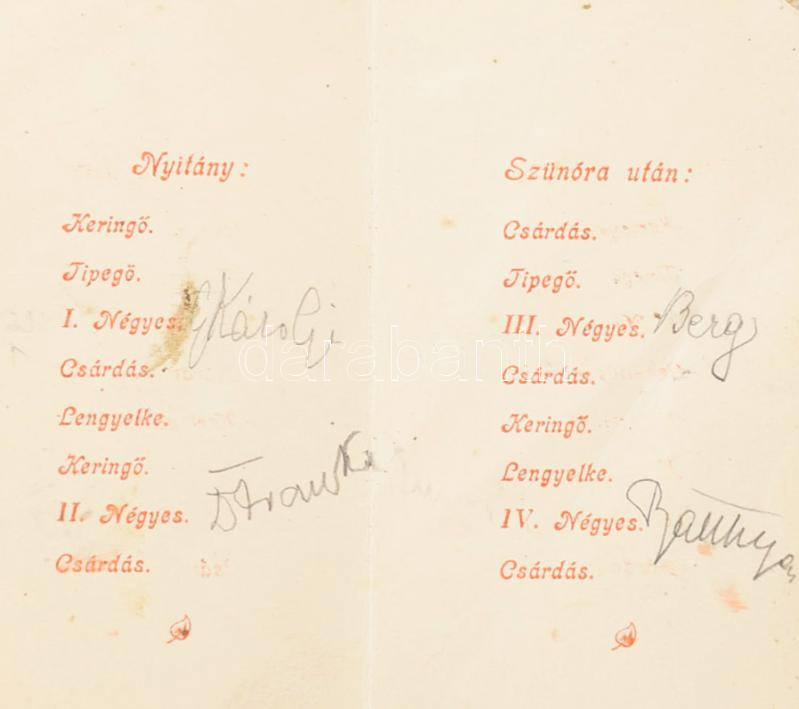 Nyitány:
Keringő.
Tipegő.
I. Négyes. Károlyi
Csárdás.
Lengyelke.
Keringő.
II. Négyes.
Csárdás.
Szünóra után:
Csárdás.
Tipegő.
III. Négyes. Berg
Csárdás.
Keringő.
Lengyelke.
IV. Négyes.
Csárdás.
darabanth